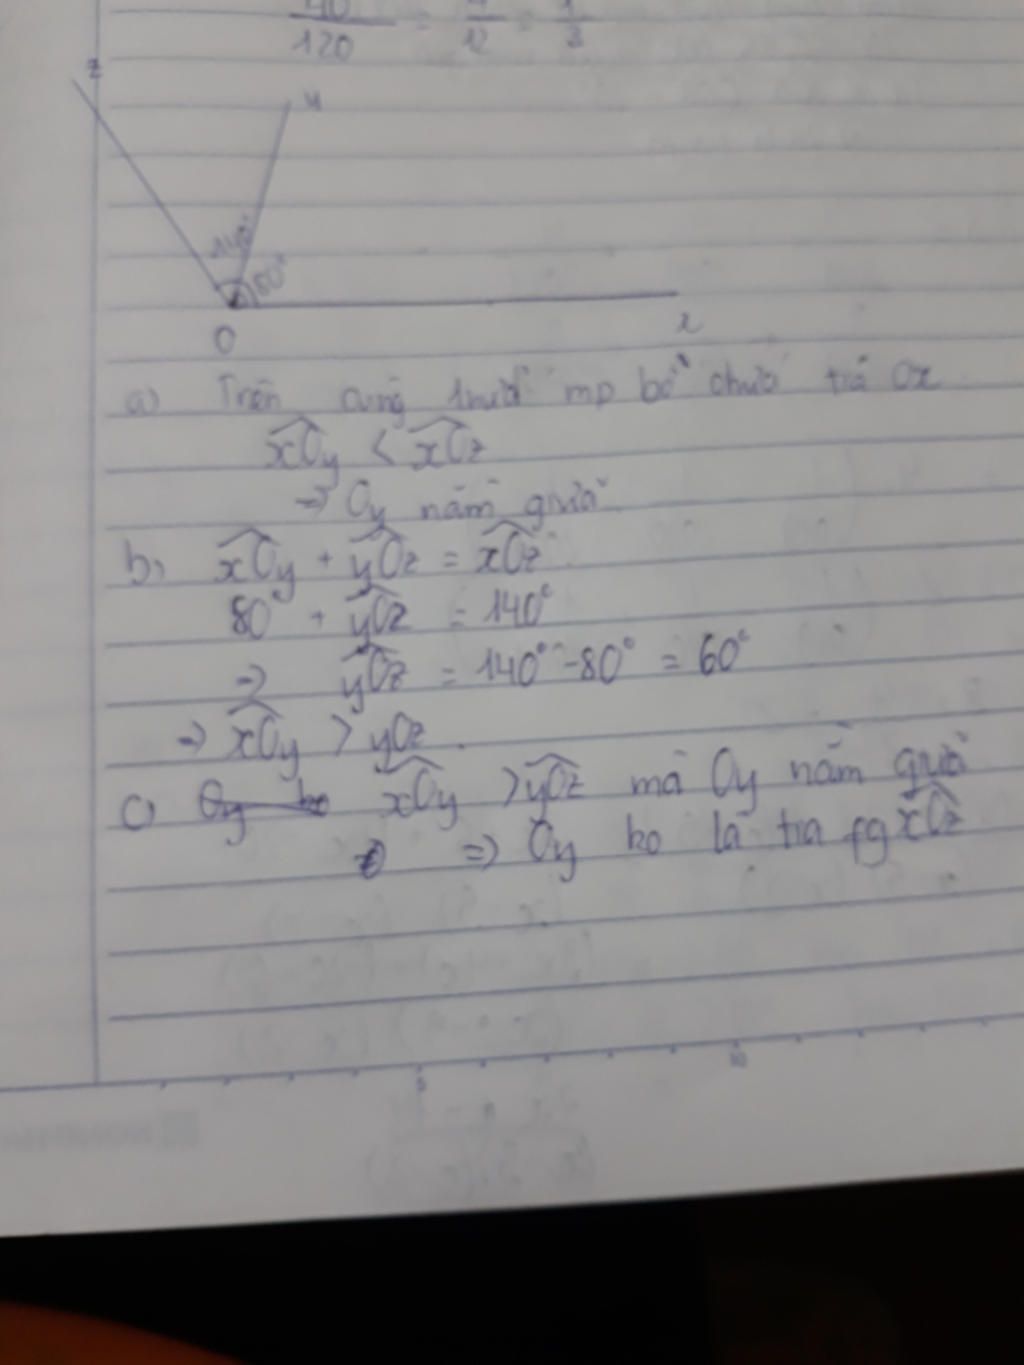 40/120 = 4/12 = 1/3
z
y
140°
80°
O
x
a) Trên cùng 1 nửa mp bờ chứa tia Ox
xOy < xOz
=> Oy nằm giữa
b, xOy + yOz = xOz
80° + yOz = 140°
=> yOz = 140° - 80° = 60°
=> xOy > yOz
c) xOy > yOz mà Oy nằm giữa
=> Oy ko là tia pg xOz
5
10